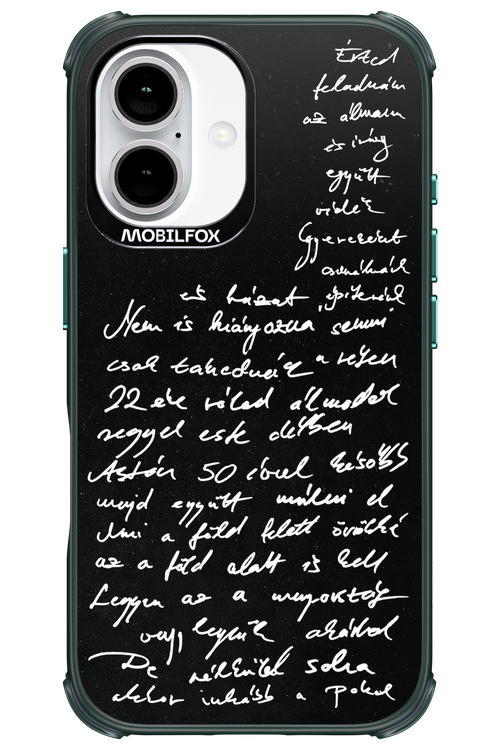 MOBILFOX
Érted
feladnám
az álmaim
és irány
együtt
vidék
Gyerekeket
csinálnánk
és házat építenénk
Nem is hiányozna semmi
csak takednéz a részem
22 éve rólad álmodok
reggel este délben
Aztán 50 évvel később
majd együtt múlni el
Ami a föld felett örökké
az a föld alatt is kell
Legyen az a mennyország
vagy legyünk akárhol
De nélküled soha
akkor inkább a pokol